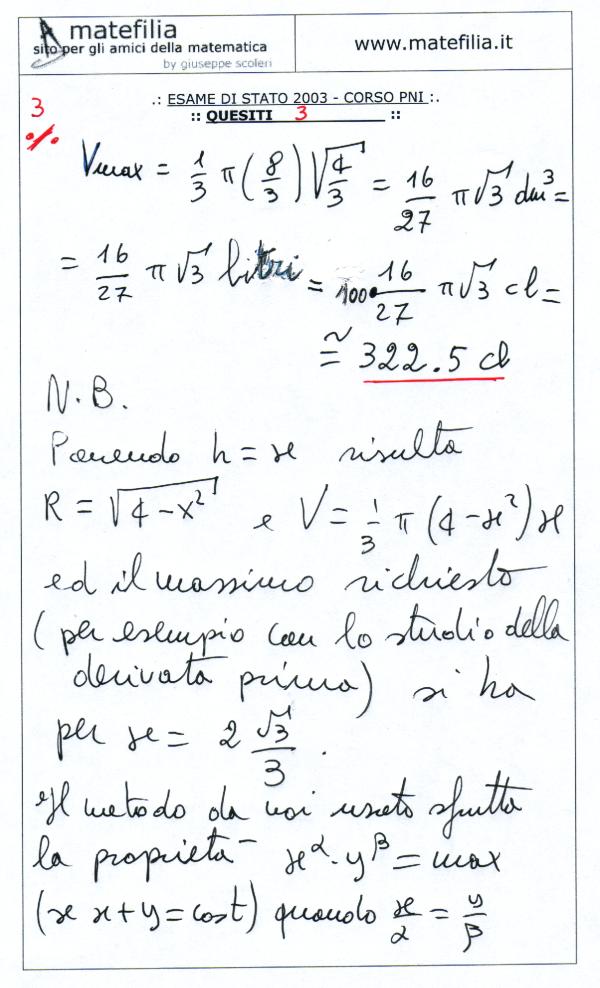 matefilia
sito per gli amici della matematica
by giuseppe scoleri
www.matefilia.it
.: ESAME DI STATO 2003 - CORSO PNI :.
:: QUESITI 3 ::
3
%
Vmax = 1/3 π (8/3) √(4/3) = 16/27 π √3 dm³ =
= 16/27 π √3 litri = 100 · 16/27 π √3 cl =
≅ 322.5 cl
N.B.
Ponendo h = x risulta
R = √(4 - x²) e V = 1/3 π (4 - x²) x
ed il massimo richiesto
(per esempio con lo studio della
derivata prima) si ha
per x = 2 √3/3 .
Il metodo da noi usato sfrutta
la proprietà x^α · y^β = max
(se x + y = cost) quando x/α = y/β